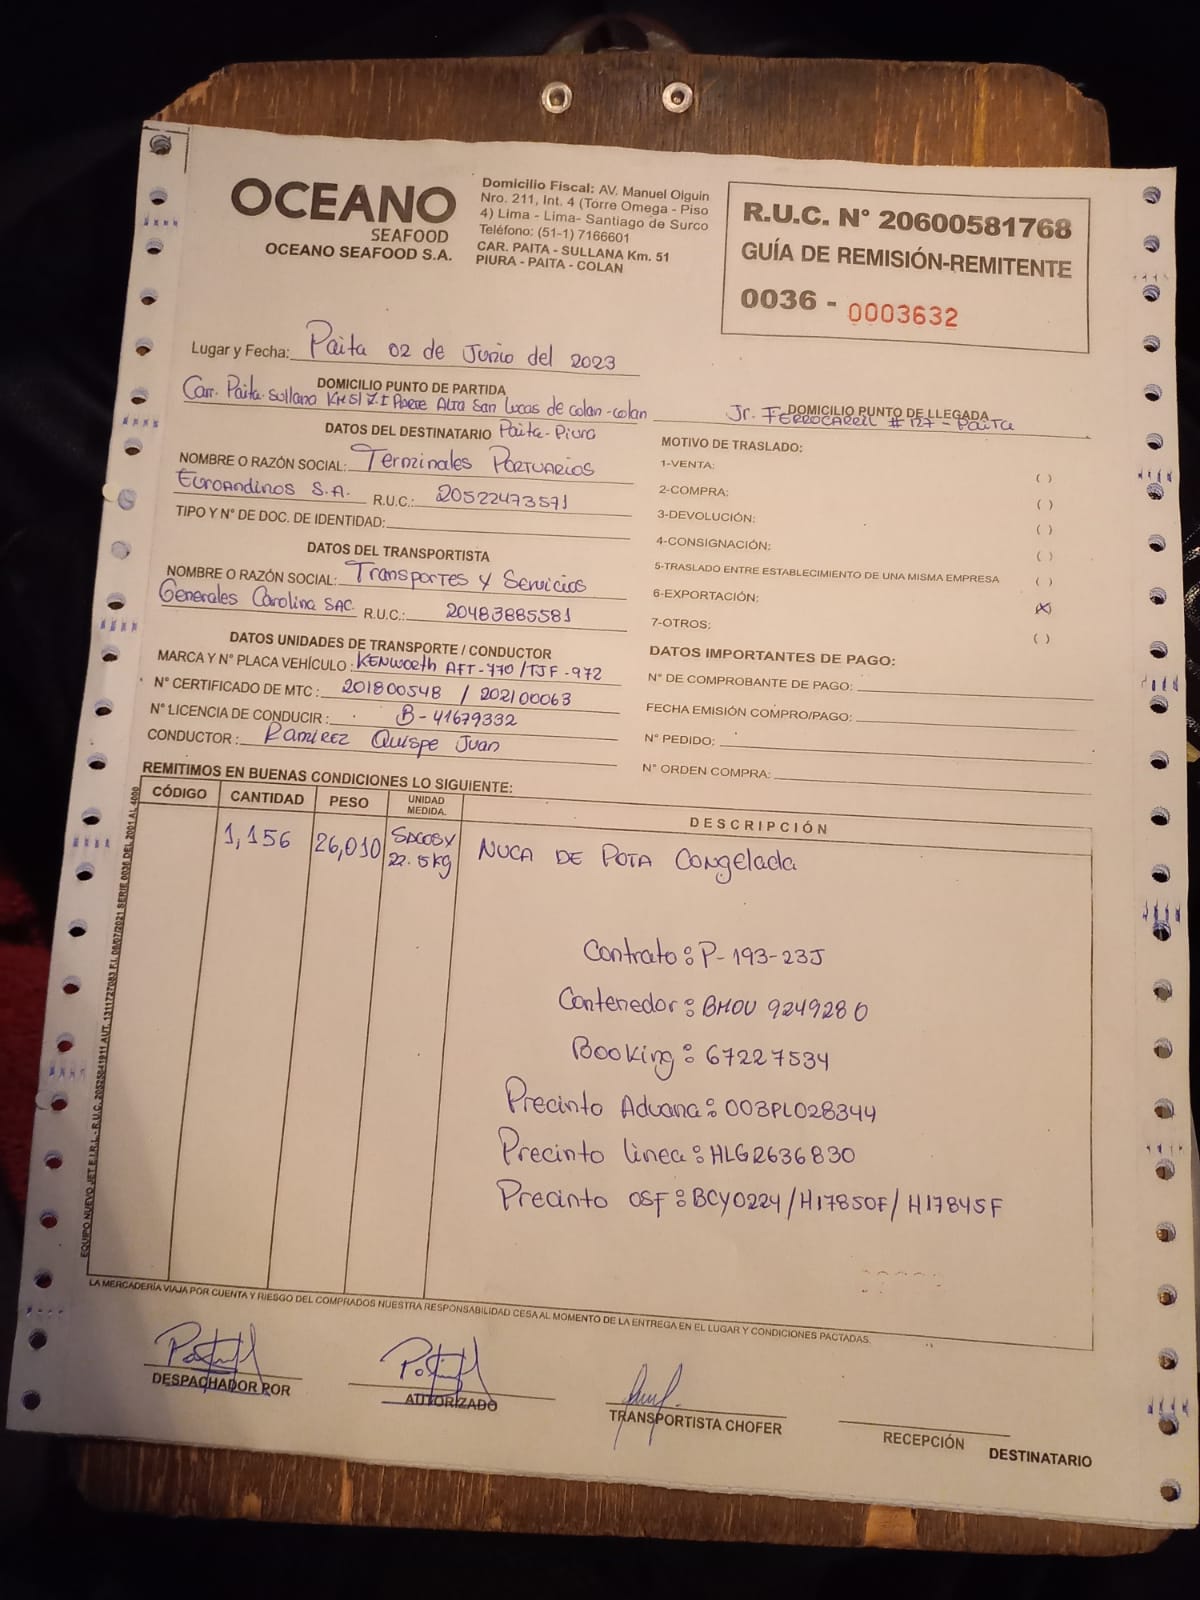 OCEANO
SEAFOOD
OCEANO SEAFOOD S.A.
Domicilio Fiscal: AV. Manuel Olguin
Nro. 211, Int. 4 (Torre Omega - Piso
4) Lima - Lima- Santiago de Surco
Teléfono: (51-1) 7166601
CAR. PAITA - SULLANA Km. 51
PIURA - PAITA - COLAN
R.U.C. N° 20600581768
GUÍA DE REMISIÓN-REMITENTE
0036 - 0003632
Lugar y Fecha: Paita 02 de Junio del 2023
DOMICILIO PUNTO DE PARTIDA
Carr. Paita-Sullana KM51 Z.I Parte Alta San Lucas de Colan-colan
Paita-Piura
DOMICILIO PUNTO DE LLEGADA
Jr. FERROCARRIL # 127 - Paita
DATOS DEL DESTINATARIO
NOMBRE O RAZÓN SOCIAL: Terminales Portuarios
Euroandinos S.A. R.U.C.: 20522473571
TIPO Y N° DE DOC. DE IDENTIDAD:
DATOS DEL TRANSPORTISTA
NOMBRE O RAZÓN SOCIAL: Transportes y Servicios
Generales Carolina SAC. R.U.C.: 20483885581
DATOS UNIDADES DE TRANSPORTE / CONDUCTOR
MARCA Y N° PLACA VEHÍCULO : KENWOrth AFT-770 / TJF-972
N° CERTIFICADO DE MTC : 201800548 / 202100063
N° LICENCIA DE CONDUCIR : B-41679332
CONDUCTOR : Ramirez Quispe Juan
MOTIVO DE TRASLADO:
1-VENTA: ( )
2-COMPRA: ( )
3-DEVOLUCIÓN: ( )
4-CONSIGNACIÓN: ( )
5-TRASLADO ENTRE ESTABLECIMIENTO DE UNA MISMA EMPRESA ( )
6-EXPORTACIÓN: (X)
7-OTROS: ( )
DATOS IMPORTANTES DE PAGO:
N° DE COMPROBANTE DE PAGO:
FECHA EMISIÓN COMPRO/PAGO:
N° PEDIDO:
N° ORDEN COMPRA:
REMITIMOS EN BUENAS CONDICIONES LO SIGUIENTE:
CÓDIGO CANTIDAD PESO UNIDAD MEDIDA. DESCRIPCIÓN
1,156 26,010 SACOS x 22.5kg NUCA DE POTA Congelada
Contrato: P-193-23J
Contenedor: BMOU 9249280
Booking: 67227534
Precinto Aduana: 003PL028344
Precinto linea: HLG2636830
Precinto OSF: BCY0224/H17850F/H17845F
EQUIPO NUEVO JET E.I.R.L - R.U.C. 20525841911 AUT. 1311727083 F.I. 08/07/2021 SERIE 0036 DEL 2001 AL 4000
LA MERCADERÍA VIAJA POR CUENTA Y RIESGO DEL COMPRADOS NUESTRA RESPONSABILIDAD CESA AL MOMENTO DE LA ENTREGA EN EL LUGAR Y CONDICIONES PACTADAS.
DESPACHADOR POR
AUTORIZADO
TRANSPORTISTA CHOFER
RECEPCIÓN
DESTINATARIO